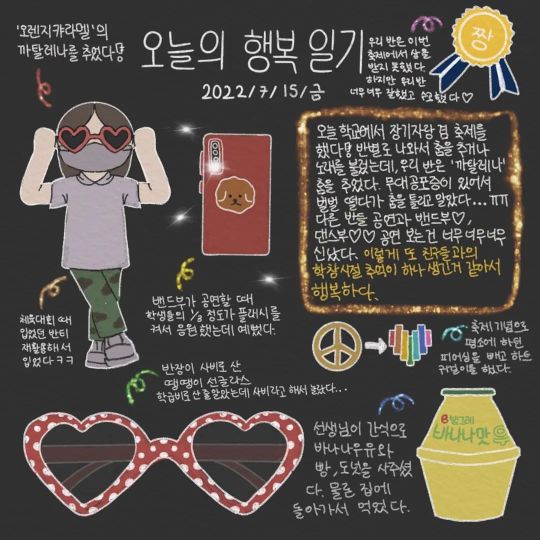 '오렌지캬라멜'의
까탈레나를 추었다!
오늘의 행복 일기
2022/7/15/금
우리 반은 이번
축제에서 상을
받지 못했다
하지만 우리반
너무너무 잘했고 수고했다♡
짱
오늘 학교에서 장기자랑 겸 축제를
했다! 반별로 나와서 춤을 추거나
노래를 불렀는데, 우리 반은 '까탈레나'
춤을 추었다. 무대공포증이 있어서
벌벌 떨다가 춤을 틀리고 말았다...ㅠㅠ
다른 반들 공연과 밴드부♡,
댄스부♡♡ 공연 보는건 너무너무너무
신났다. 이렇게 또 친구들과의
학창시절 추억이 하나 생긴거 같아서
행복하다.
체육대회 때
입었던 반티
재활용해서
입었다ㅋㅋ
밴드부가 공연할 때
학생들의 1/3 정도가 플래시를
켜서 응원했는데 예뻤다.
축제 기념으로
평소에 하던
피어싱을 빼고 하트
귀걸이를 했다.
반장이 사비로 산
땡땡이 선글라스
학급비로 산 줄 알았는데 사비라고 해서 놀랐다...
선생님이 간식으로
바나나우유와
빵, 도넛을 사주셨
다. 물론 집에
돌아가서 먹었다.
빙그레
바나나맛
우유